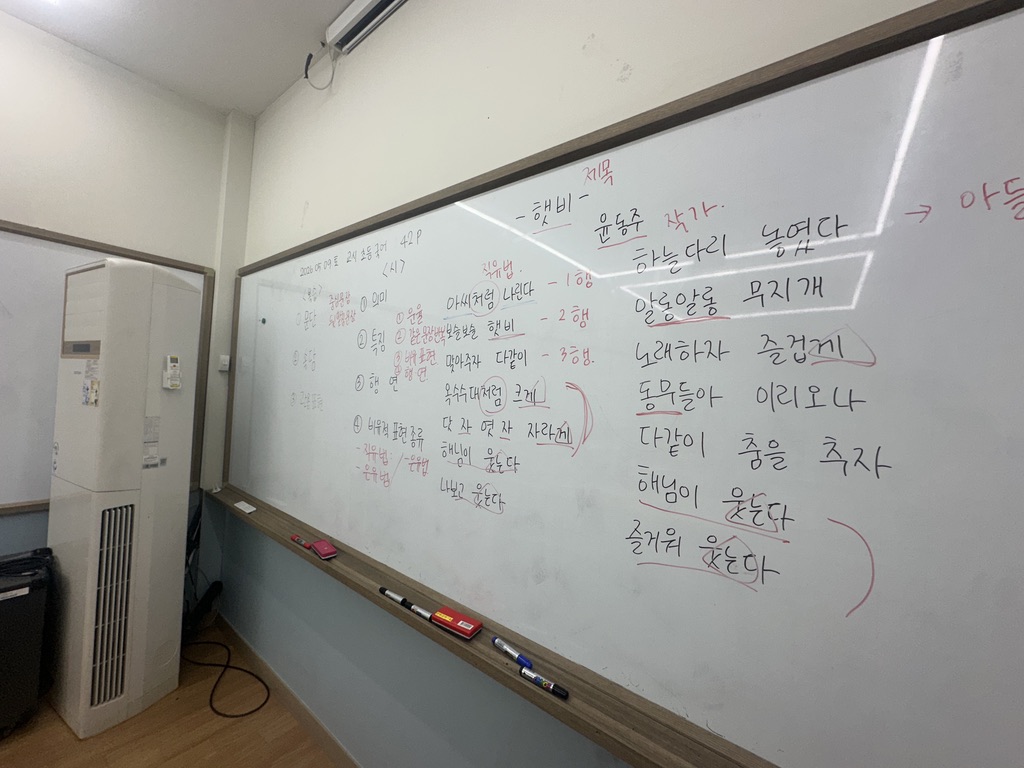 제목
- 햇비 -
윤동주 작가.
2026 05 09 토 2시 초등국어 42P
<시>
① 의미
② 특징
① 운율
③ 행 연
④ 비유적 표현 종류
- 직유법
- 은유법
직유법.
아씨처럼 나린다 - 1행
보슬보슬 햇비 - 2행
맞아주자 다같이 - 3행.
옥수수대처럼 크게
닷 자 엿 자 자라게
해님이 웃는다
나보고 웃는다
하늘다리 놓였다
알롱알롱 무지개
노래하자 즐겁게
동무들아 이리오나
다같이 춤을 추자
해님이 웃는다
즐거워 웃는다
→ 아들